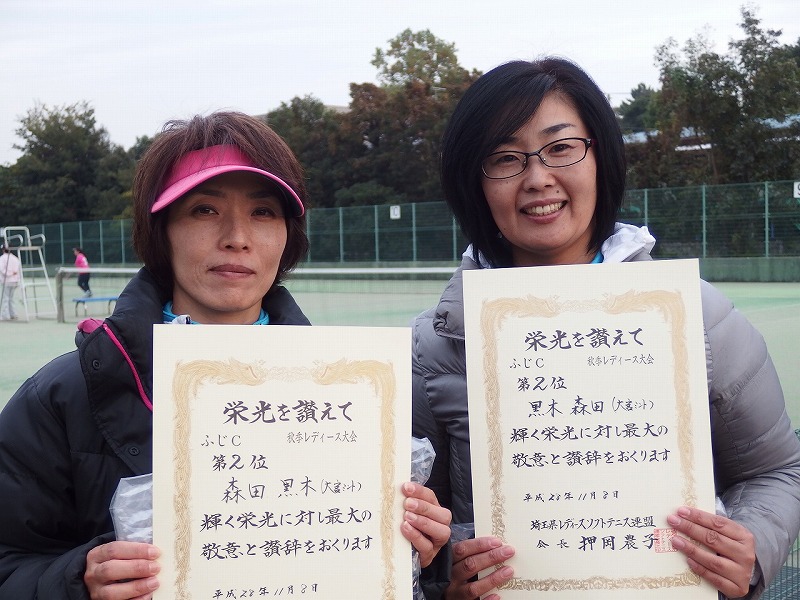 栄光を讃えて
ふじC 秋季レディース大会
第2位
森田 黒木(大宮ミント)
輝く栄光に対し最大の
敬意と讃辞をおくります
平成28年11月8日
栄光を讃えて
ふじC 秋季レディース大会
第2位
黒木 森田(大宮ミント)
輝く栄光に対し最大の
敬意と讃辞をおくります
平成28年11月8日
埼玉県レディースソフトテニス連盟
会長 押岡農子